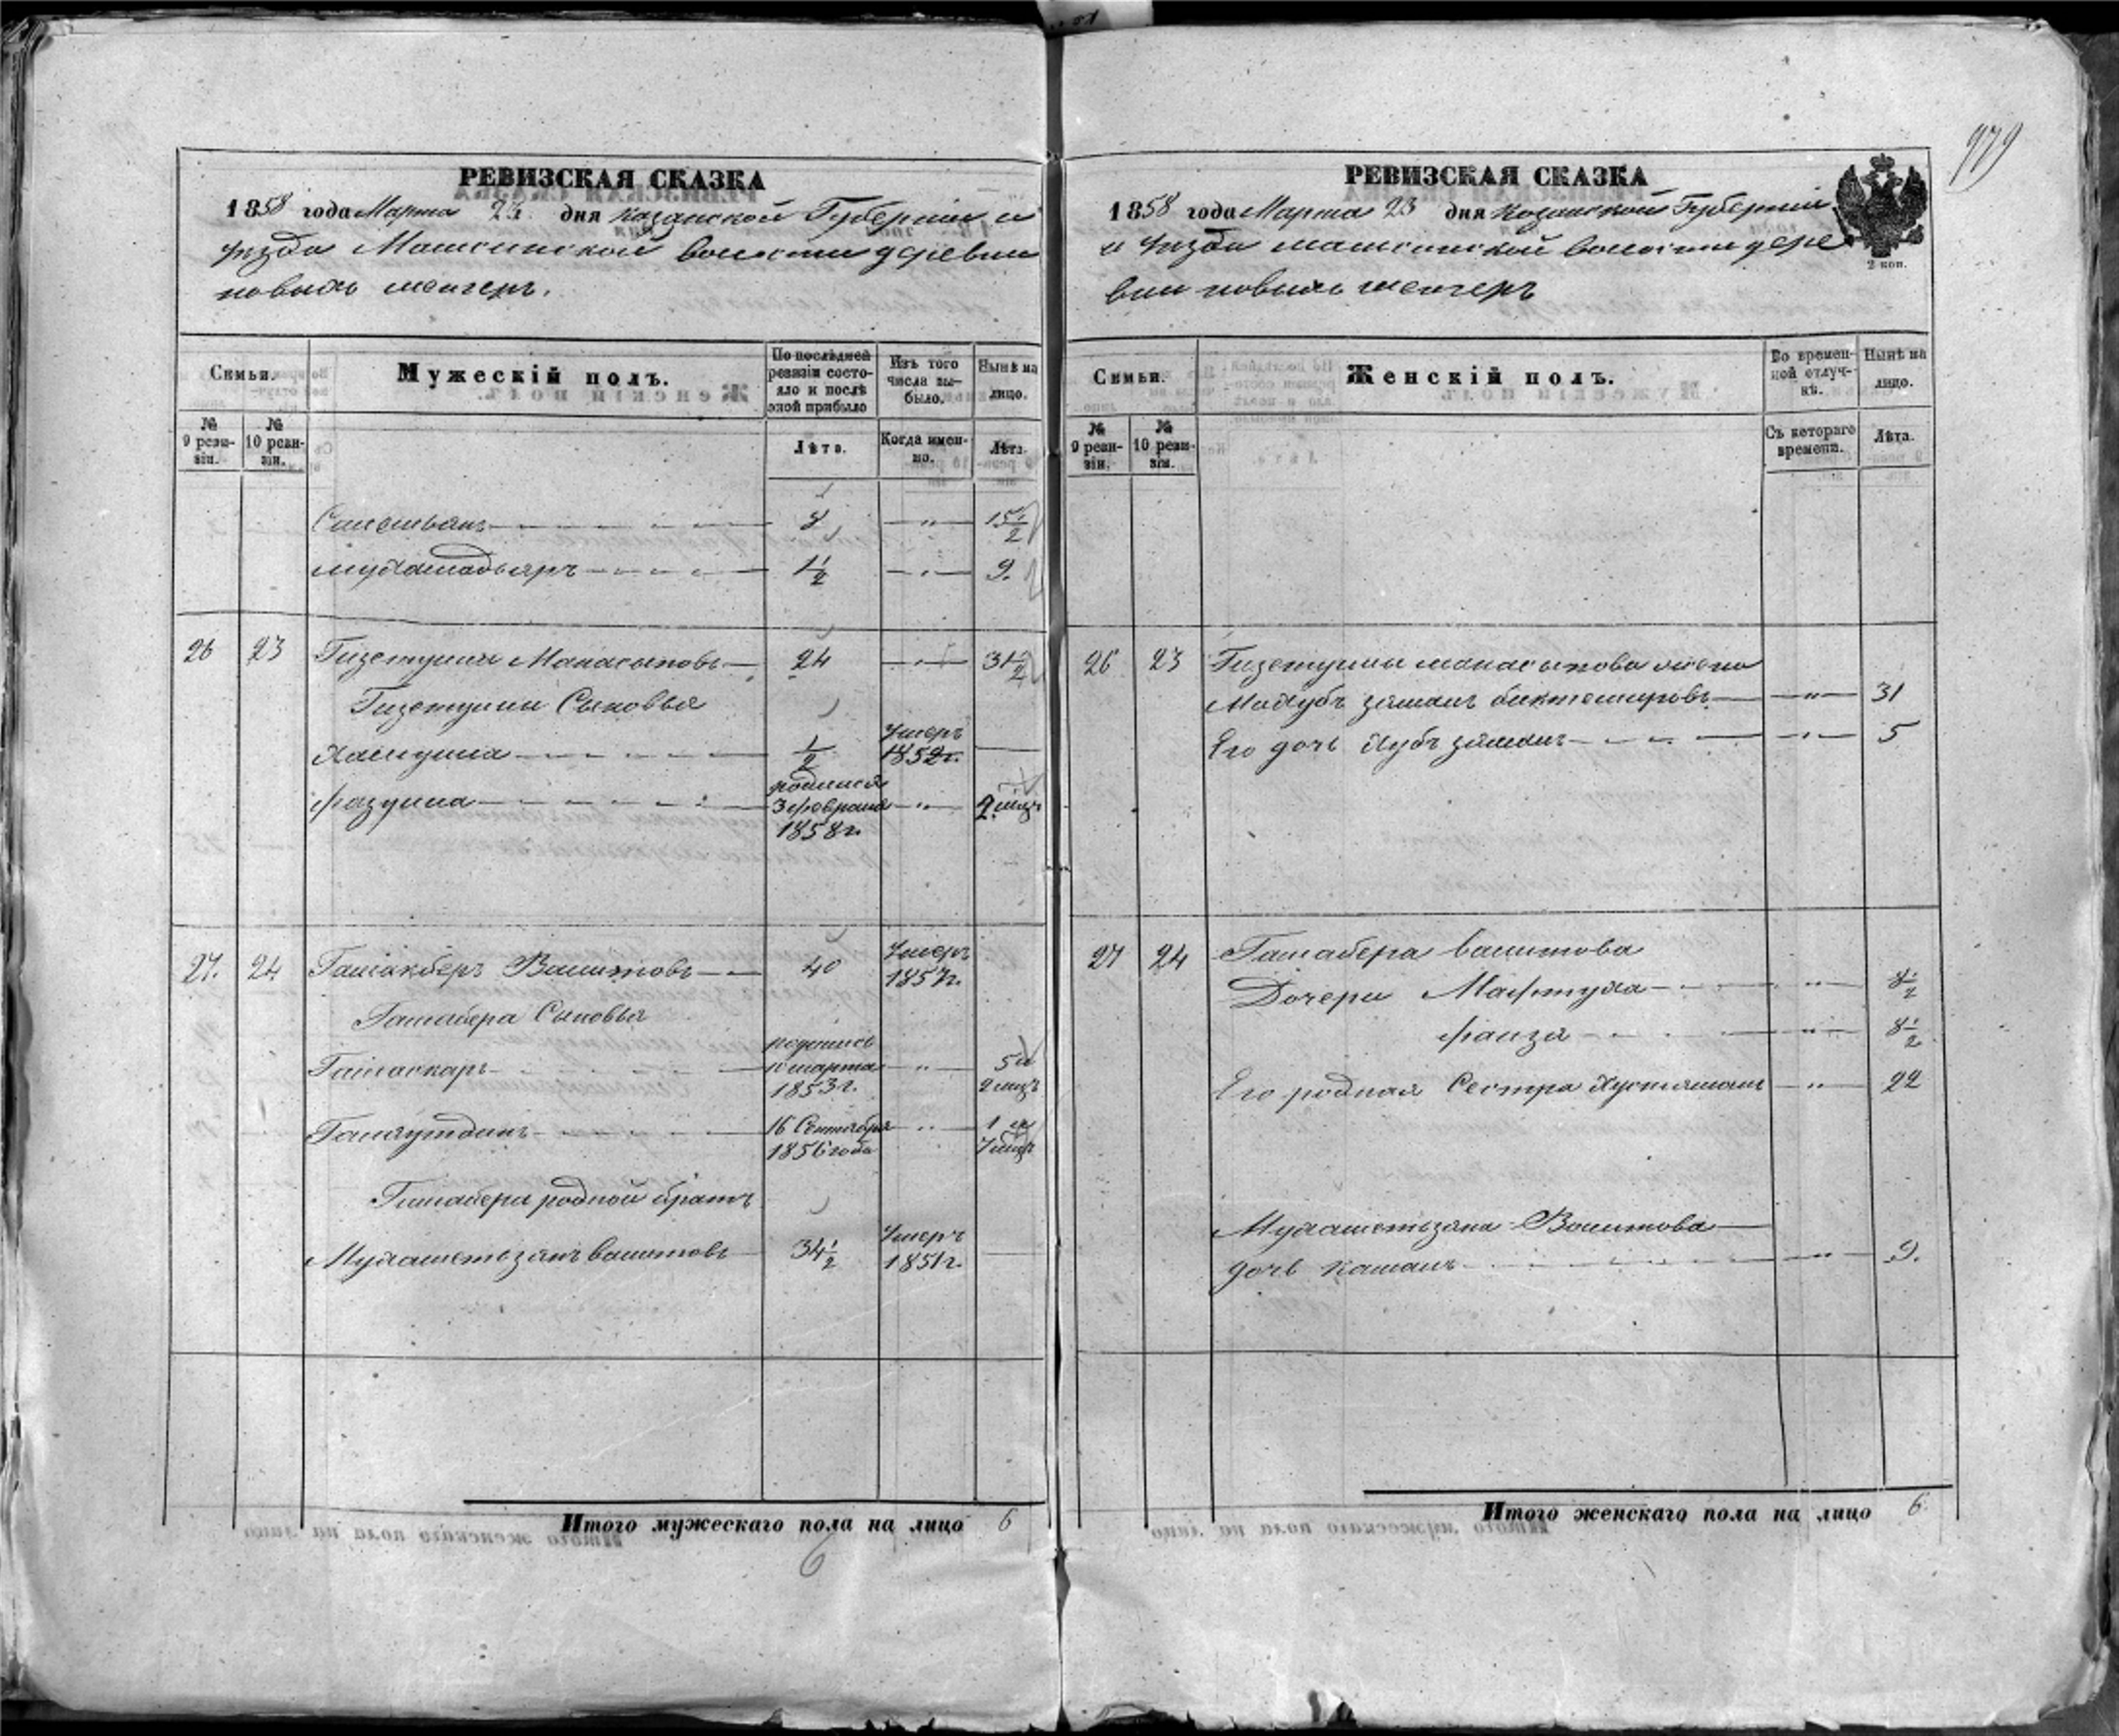 РЕВИЗСКАЯ СКАЗКА
1858 года Марта 23 дня Казанской Губернии и
уезда Машсинской волости деревни
новыхъ менгеръ.
Семьи.
№ 9 ревизіи.
№ 10 ревизіи.
Мужескій полъ.
По послѣдней ревизіи состояло и послѣ оной прибыло
Лѣта.
Изъ того числа выбыло.
Когда именно.
Нынѣ на лицо.
Лѣта.
8 — " — 15 1/2
Мухамадьяръ — 1 1/2 — " — 9.
26 23 Гизетулла Манасыповъ — 24 — " — 31 1/2
Гизетуллы Сыновья
Халиулла — 1/2 Умеръ 1852 г. —
Фазулла — родился 3 февраля 1858 г. — " — 2 мцъ
27. 24 Галіакберъ Валитовъ — 40 Умеръ 1857 г.
Сыновья
Галіаскаръ — родились 10 марта 1853 г. — " — 5 и 2 мцъ
16 Сентября 1856 года — " — 1 и 7 мцъ
родной братъ
Мухаметьзянъ Валитовъ — 34 1/2 Умеръ 1851 г. —
Итого мужескаго пола на лицо 6
6
979
РЕВИЗСКАЯ СКАЗКА
2 коп.
1858 года Марта 23 дня Казанской Губерніи
и уезда машсинской волости дере
вни новыхъ менгеръ
Семьи.
№ 9 ревизіи.
№ 10 ревизіи.
Женскій полъ.
Во временной отлучкѣ.
Съ котораго времени.
Нынѣ на лицо.
Лѣта.
26 23 Гизетуллы манасыпова жена
Махубъ зямалъ биктемировъ — " — 31
Его дочь Хубъ зямалъ — " — 5
27 24 валитова
Дочери Мафтуха — " — 8 1/2
Фаиза — " — 8 1/2
Его родная Сестра — " — 22
Мухаметьзяна Валитова —
дочь Камалъ — " — 9.
Итого женскаго пола на лицо 6